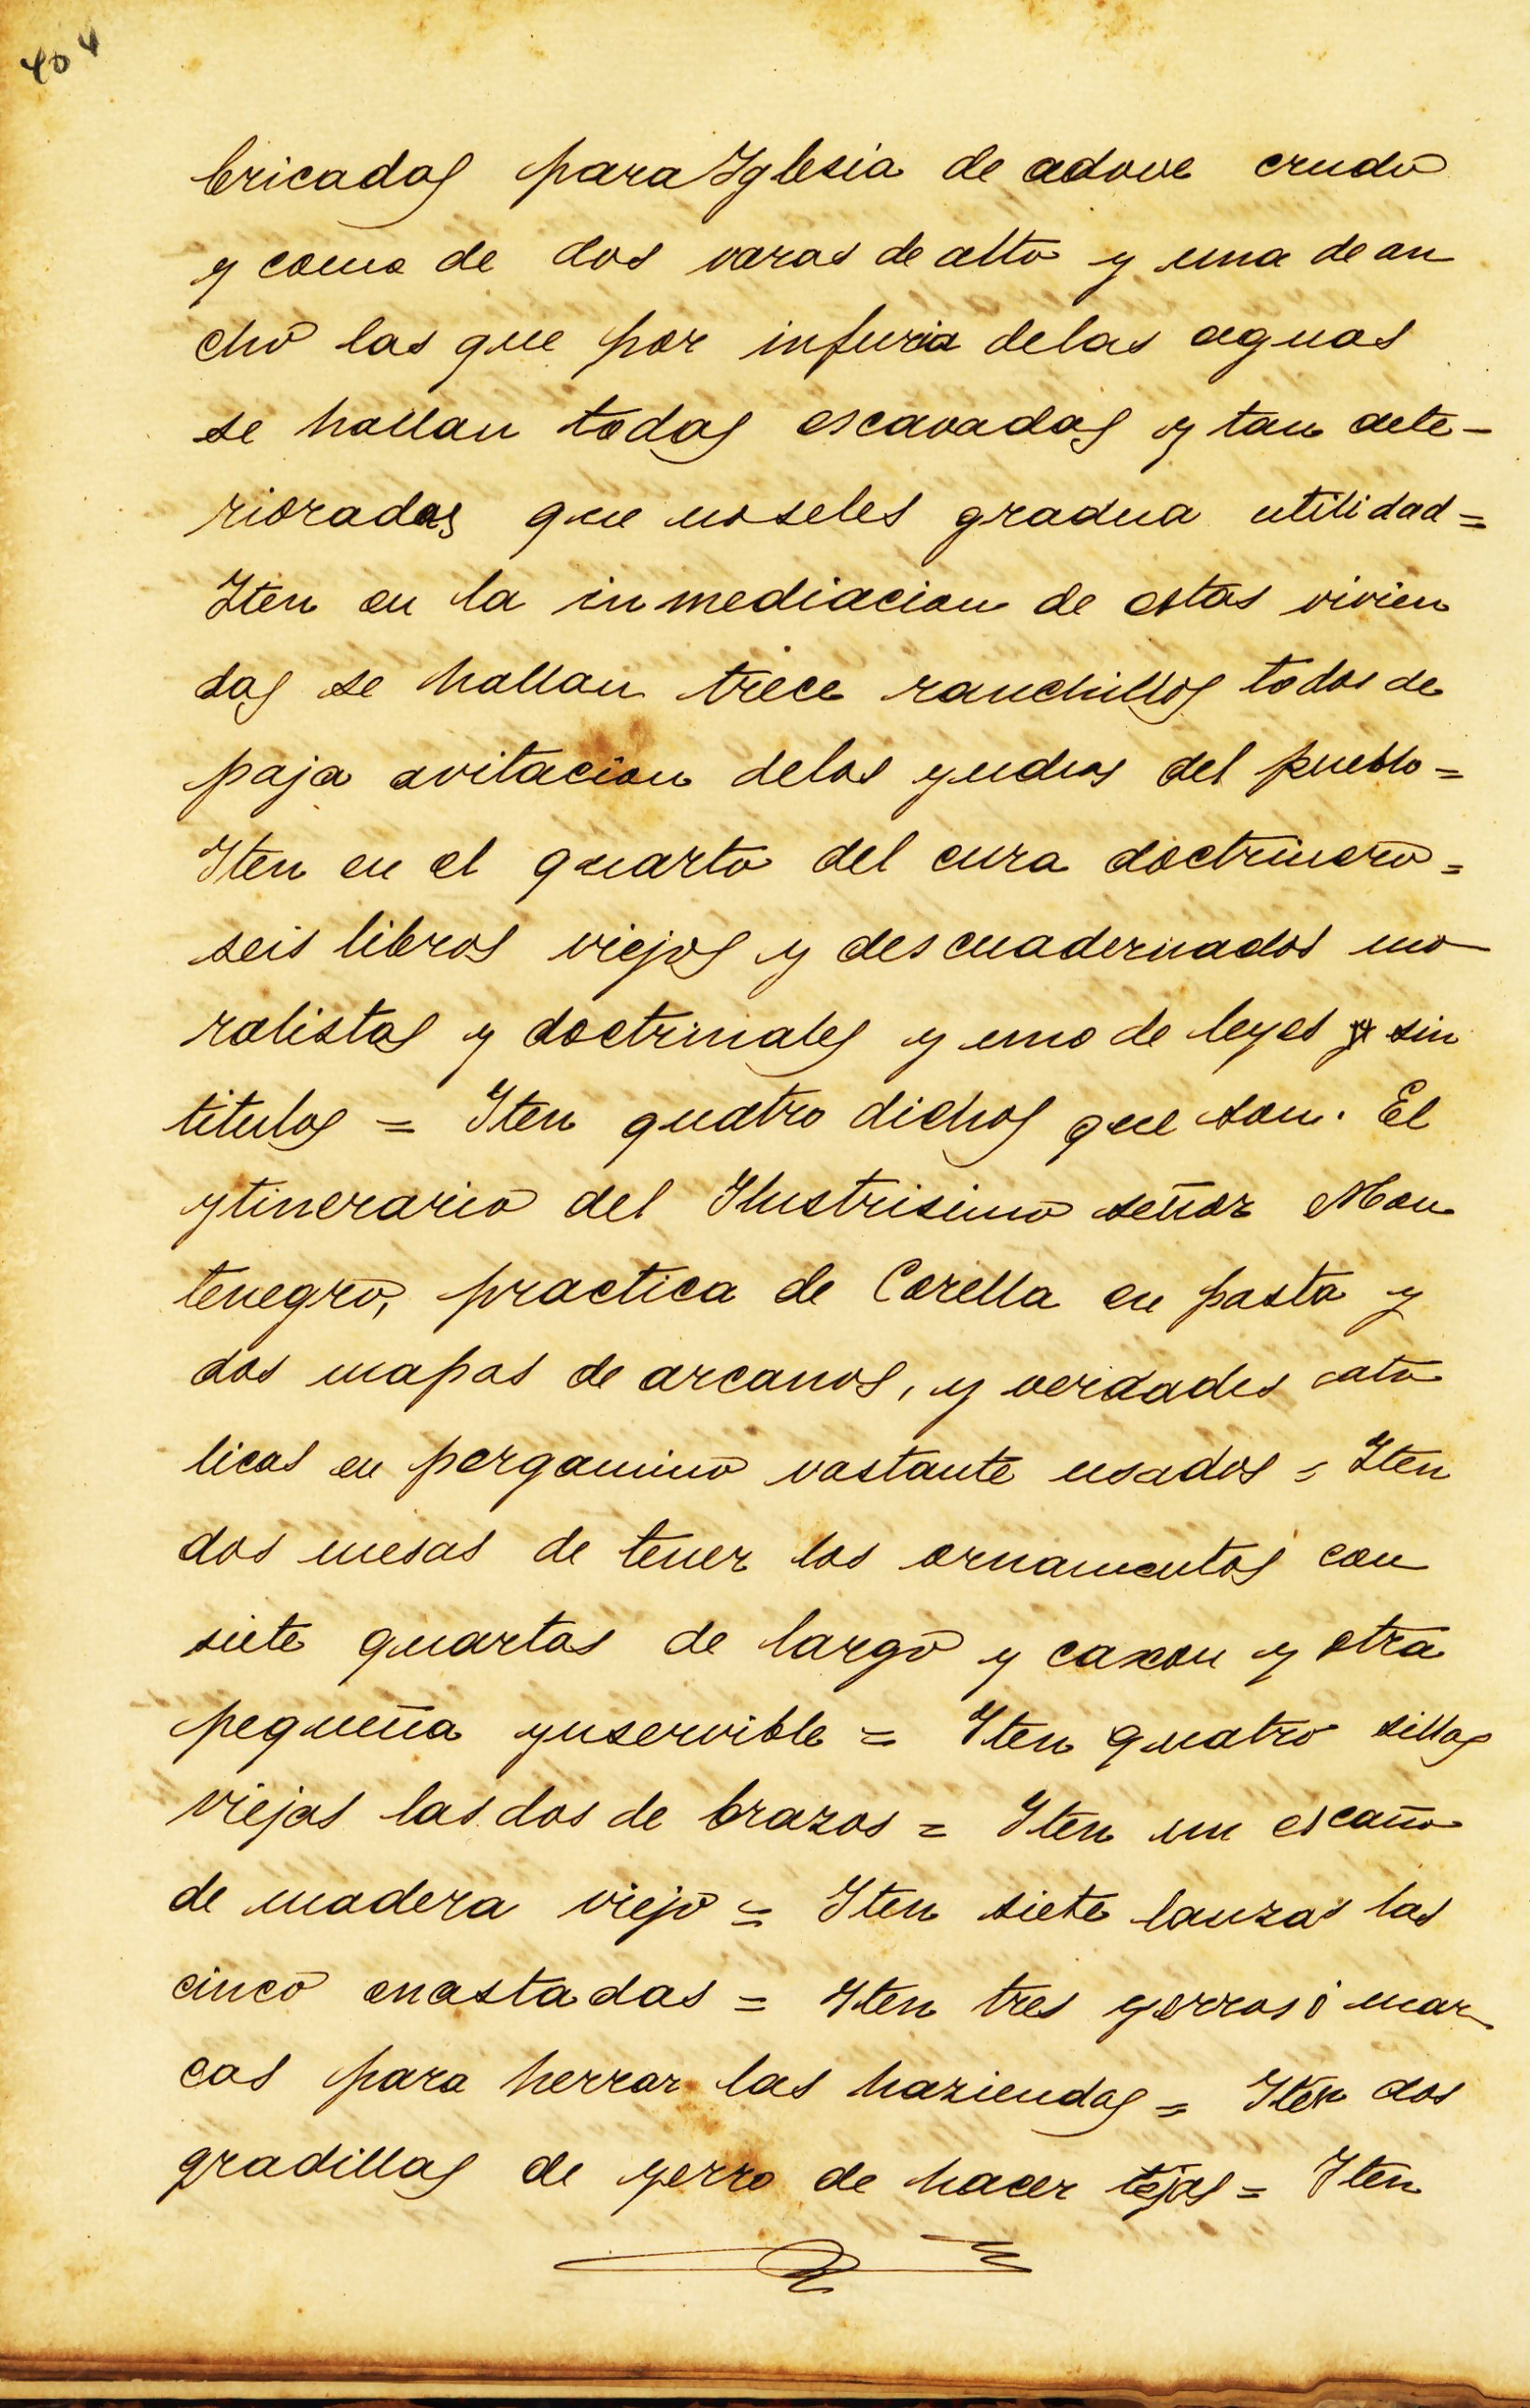 404
bricadas para Iglesia de adove crudo
y como de dos varas de alto y una de an
cho las que por infuria delas aguas
se hallan todas escavadas y tan dete-
rioradas que noseles gradua utilidad=
Iten en la inmediacion de estas vivien
das se hallan trece ranchillos todos de
paja avitacion delos yndios del pueblo=
Iten en el quarto del cura doctrinero=
seis libros viejos y descuadernados mo
ralistas y doctrinales y uno de leyes y sin
titulos = Iten quatro dichos que son. El
ytinerario del Ilustrisimo señor Mon
tenegro, practica de Corella en pasta y
dos mapas de arcanos, y verdades cato
licas en pergamino vastante usados = Iten
dos mesas de tener los ornamentos con
siete quartas de largo y caxon y otra
pequeña ynservible = Iten quatro sillas
viejas las dos de brazos = Iten un escaño
de madera viejo = Iten siete lanzas las
cinco enastadas = Iten tres yerros o mar
cas para herrar las haziendas = Iten dos
gradillas de yerro de hacer tejas = Iten